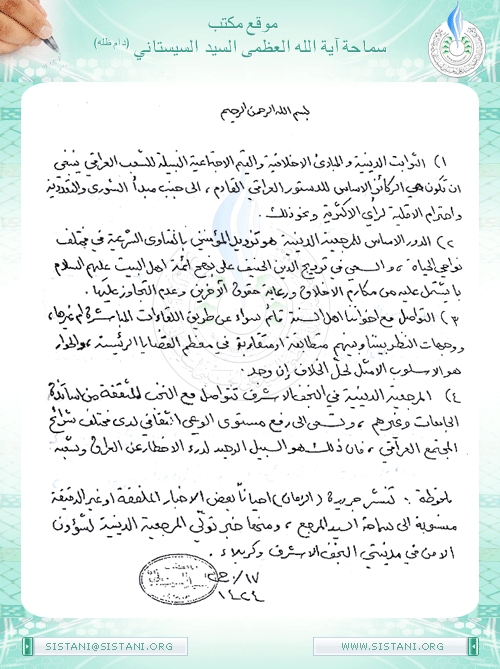 موقع مكتب
سماحة آية الله العظمى السيد السيستاني (دام ظله)
بسم الله الرحمن الرحيم
١) الثوابت الدينية والمبادئ الاخلاقية والقيم الاجتماعية النبيلة للشعب العراقي ينبغي
ان تكون هي الركائز الاساس للدستور العراقي القادم، الى جنب مبدأ الشورى والتعددية
واحترام الاقلية لرأي الاكثرية ونحو ذلك.
٢) الدور الاساس للمرجعية الدينية هو تزويد المؤمنين بالفتاوى الشرعية في مختلف
نواحي الحياة، والسعي في ترويج الدين الحنيف على نهج ائمة اهل البيت عليهم السلام
بما يشتمل عليه من مكارم الاخلاق ورعاية حقوق الآخرين وعدم التجاوز عليها.
٣) التواصل مع اخواننا اهل السنة قائم سواء عن طريق اللقاءات المباشرة أم غيرها،
ووجهات النظر بيننا وبينهم متطابقة او متقاربة في معظم القضايا الرئيسة، والحوار
هو الاسلوب الامثل لحل الخلاف إن وجد.
٤) المرجعية الدينية في النجف الاشرف تتواصل مع النخب المثقفة من اساتذة
الجامعات وغيرهم، وتسعى الى رفع مستوى الوعي الثقافي لدى مختلف شرائح
المجتمع العراقي، فان ذلك هو السبيل الوحيد لدرء الاخطار عن العراق وشعبه
ملحوظة: تنشر جريدة (الزمان) احياناً بعض الاخبار الملفقة او غير الدقيقة
منسوبة الى سماحة السيد المرجع، ومنها خبر تولّي المرجعية الدينية لشؤون
الامن في مدينتي النجف الاشرف وكربلاء.
١٤٢٤
SISTANI@SISTANI.ORG
WWW.SISTANI.ORG